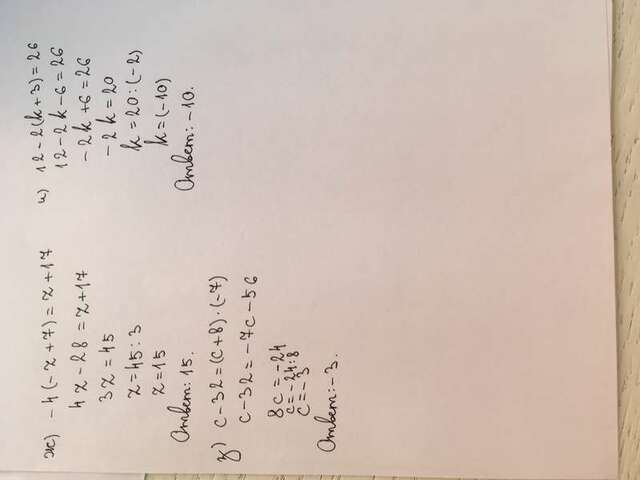 ж) -4(-z+7)=z+17
4z-28=z+17
3z=45
z=45:3
z=15
Ответ: 15.
з) c-32=(c+8)·(-7)
c-32=-7c-56
8c=-24
c=-24:8
c=-3
Ответ: -3.
и) 12-2(k+3)=26
12-2k-6=26
-2k+6=26
-2k=20
k=20:(-2)
k=(-10)
Ответ: -10.